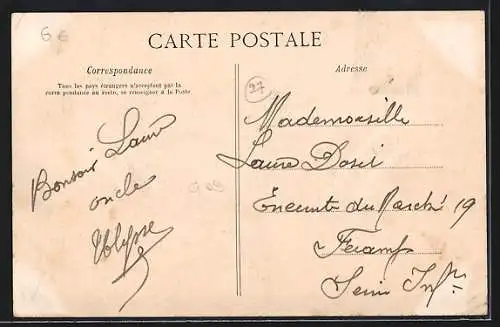 66
CARTE POSTALE
Correspondance
Tous les pays étrangers n'acceptent pas la
correspondance au recto, se renseigner à la Poste
Adresse
27
Bonsoir Laure
oncle
Ulysse
Mademoiselle
Laure
du Marché 19
Fécamp
Seine Infre